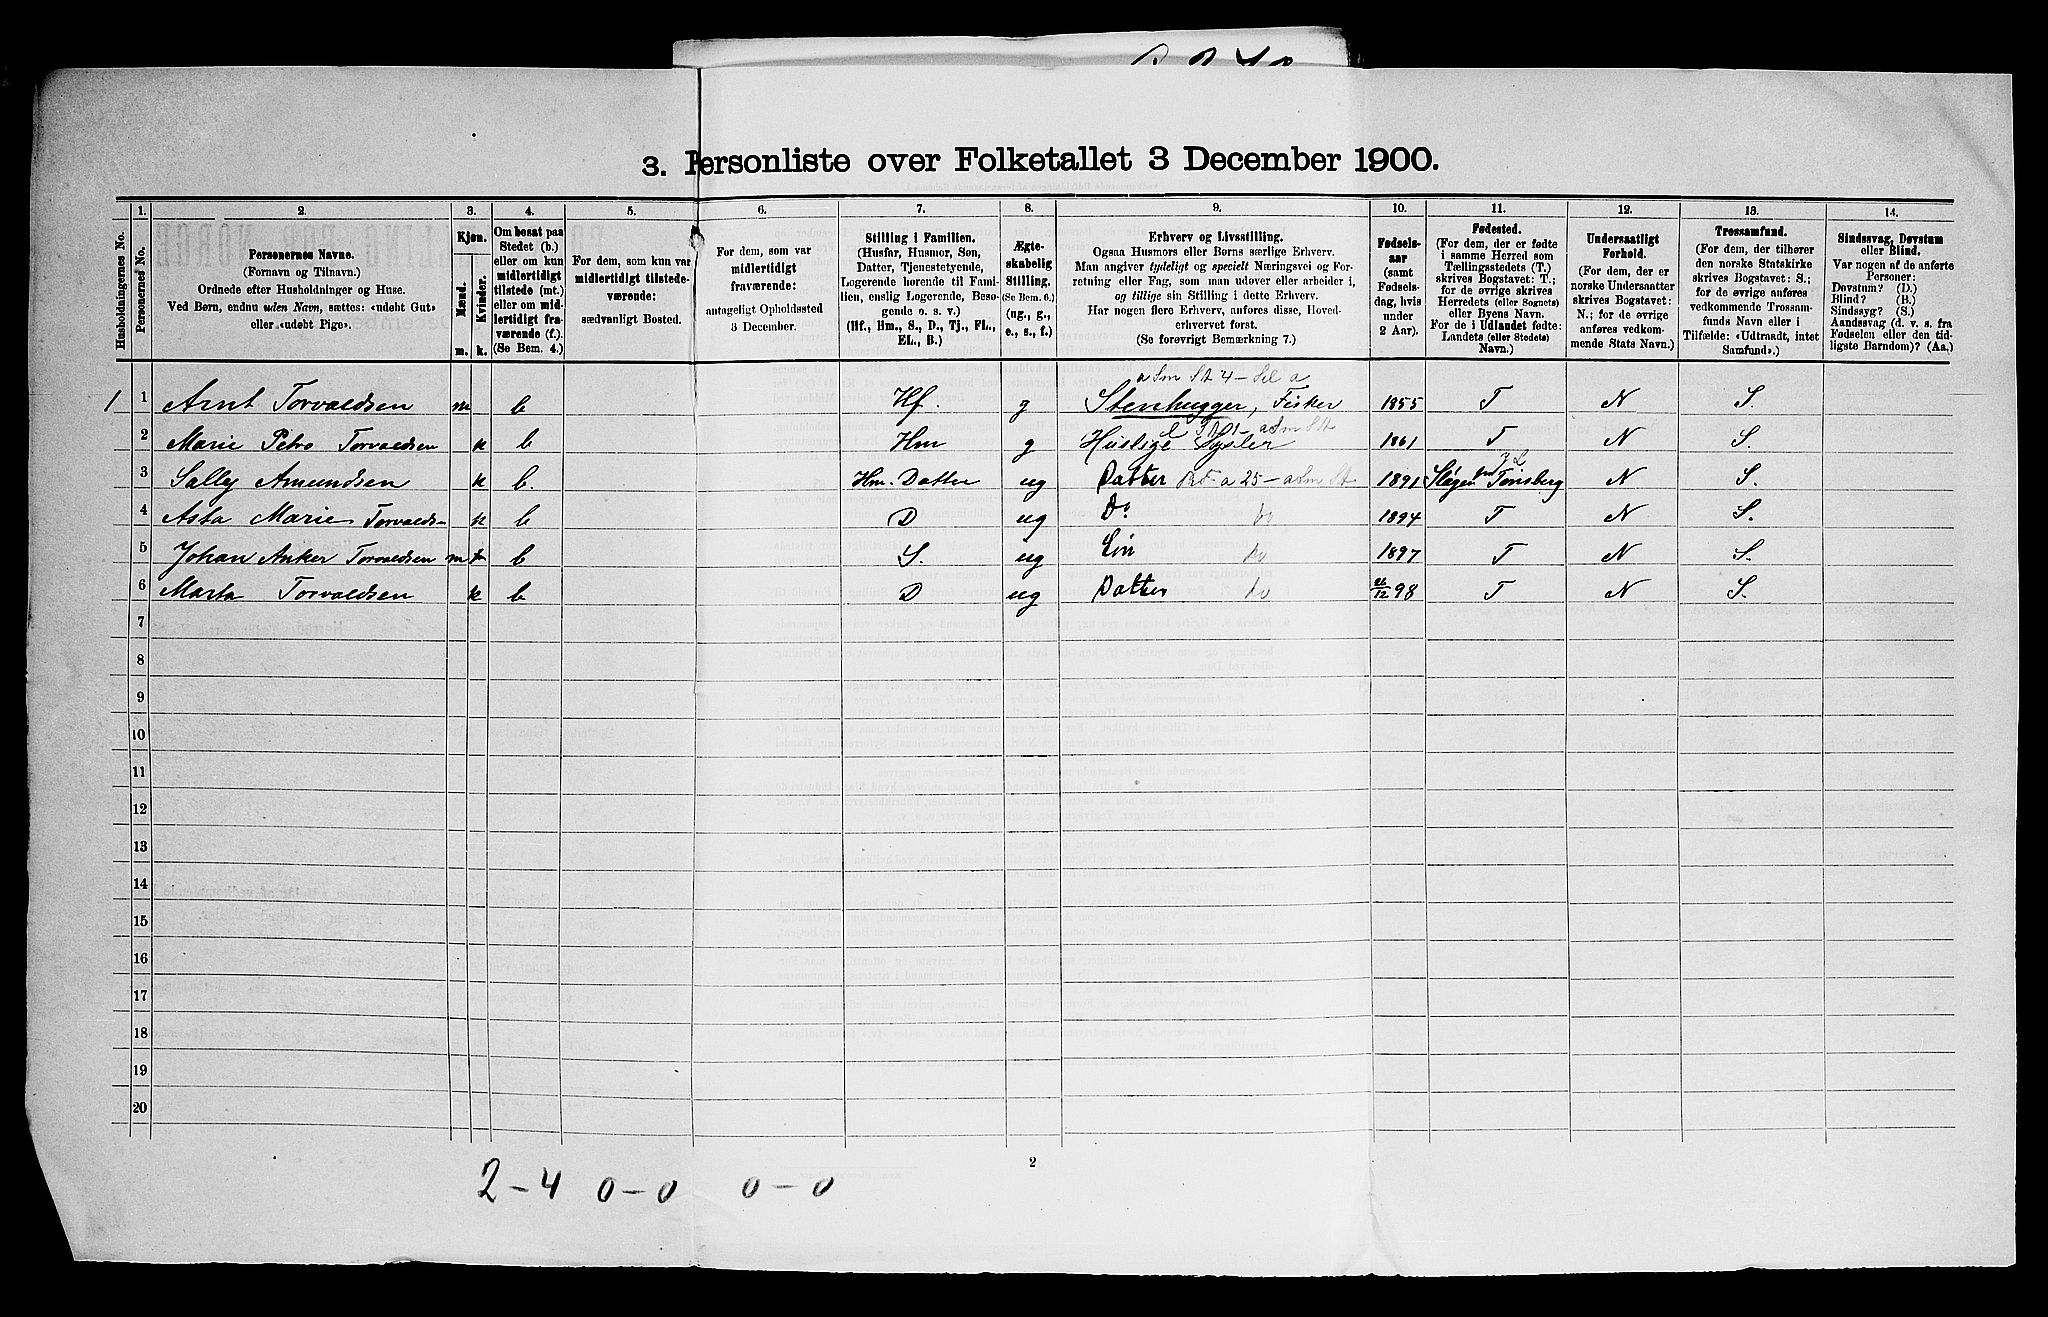 3. Personliste over Folketallet 3 December 1900.
Husholdningernes No.
1. Personernes No.
2. Personernes Navne. (Fornavn og Tilnavn.) Ordnede efter Husholdninger og Huse. Ved Børn, endnu uden Navn, sættes: «udøbt Gut» eller «udøbt Pige».
3. Kjøn. Mænd. m. Kvinder. k.
4. Om bosat paa Stedet (b.) eller om kun midlertidigt tilstede (mt.) eller om midlertidigt fraværende (f.) (Se Bem. 4.)
5. For dem, som kun var midlertidigt tilstedeværende: sædvanligt Bosted.
6. For dem, som var midlertidigt fraværende: antageligt Opholdssted 3 December.
7. Stilling i Familien. (Husfar, Husmor, Søn, Datter, Tjenestetyende, Logerende hørende til Familien, enslig Logerende, Besøgende o. s. v.) (Hf., Hm., S., D., Tj., FL., EL., B.)
8. Ægteskabelig Stilling. (Se Bem. 6.) (ug., g., e., s., f.)
9. Erhverv og Livsstilling. Ogsaa Husmors eller Børns særlige Erhverv. Man angiver tydeligt og specielt Næringsvei og Forretning eller Fag, som man udøver eller arbeider i, og tillige sin Stilling i dette Erhverv. Har nogen flere Erhverv, anføres disse, Hovederhvervet først. (Se forøvrigt Bemærkning 7.)
10. Fødselsaar (samt Fødselsdag, hvis under 2 Aar).
11. Fødested. (For dem, der er fødte i samme Herred som Tællingsstedets (T.) skrives Bogstavet: T.; for de øvrige skrives Herredets (eller Sognets) eller Byens Navn. For de i Udlandet fødte: Landets (eller Stedets) Navn.)
12. Undersaatligt Forhold. (For dem, der er norske Undersaatter skrives Bogstavet: N.; for de øvrige anføres vedkommende Stats Navn.)
13. Trossamfund. (For dem, der tilhører den norske Statskirke skrives Bogstavet: S.; for de øvrige anføres vedkommende Trossamfunds Navn eller i Tilfælde: «Udtraadt, intet Samfund».)
14. Sindssvag, Døvstum eller Blind. Var nogen af de anførte Personer: Døvstum? (D.) Blind? (B.) Sindssyg? (S.) Aandssvag (d. v. s. fra Fødselen eller den tidligste Barndom)? (Aa.)
1 1 Arnt Torvaldsen m b Hf. g Stenhugger, Fisker 1855 T N S.
2 Marie Petro Torvaldsen k b Hm g Huslige Sysler 1861 T N S.
3 Sally Amundsen k b. Hm. Datter ug Datter 1891 Slagen Tønsberg N S.
4 Asta Marie Torvalds- k b D ug Do 1894 T N S.
5 Johan Anker Torvaldsen m b S. ug Søn 1897 T N S.
6 Marta Torvaldsen k b D ug Datter 98 T N S.
7
8
9
10
11
12
13
14
15
16
17
18
19
20
2
2-4 0-0 0-0